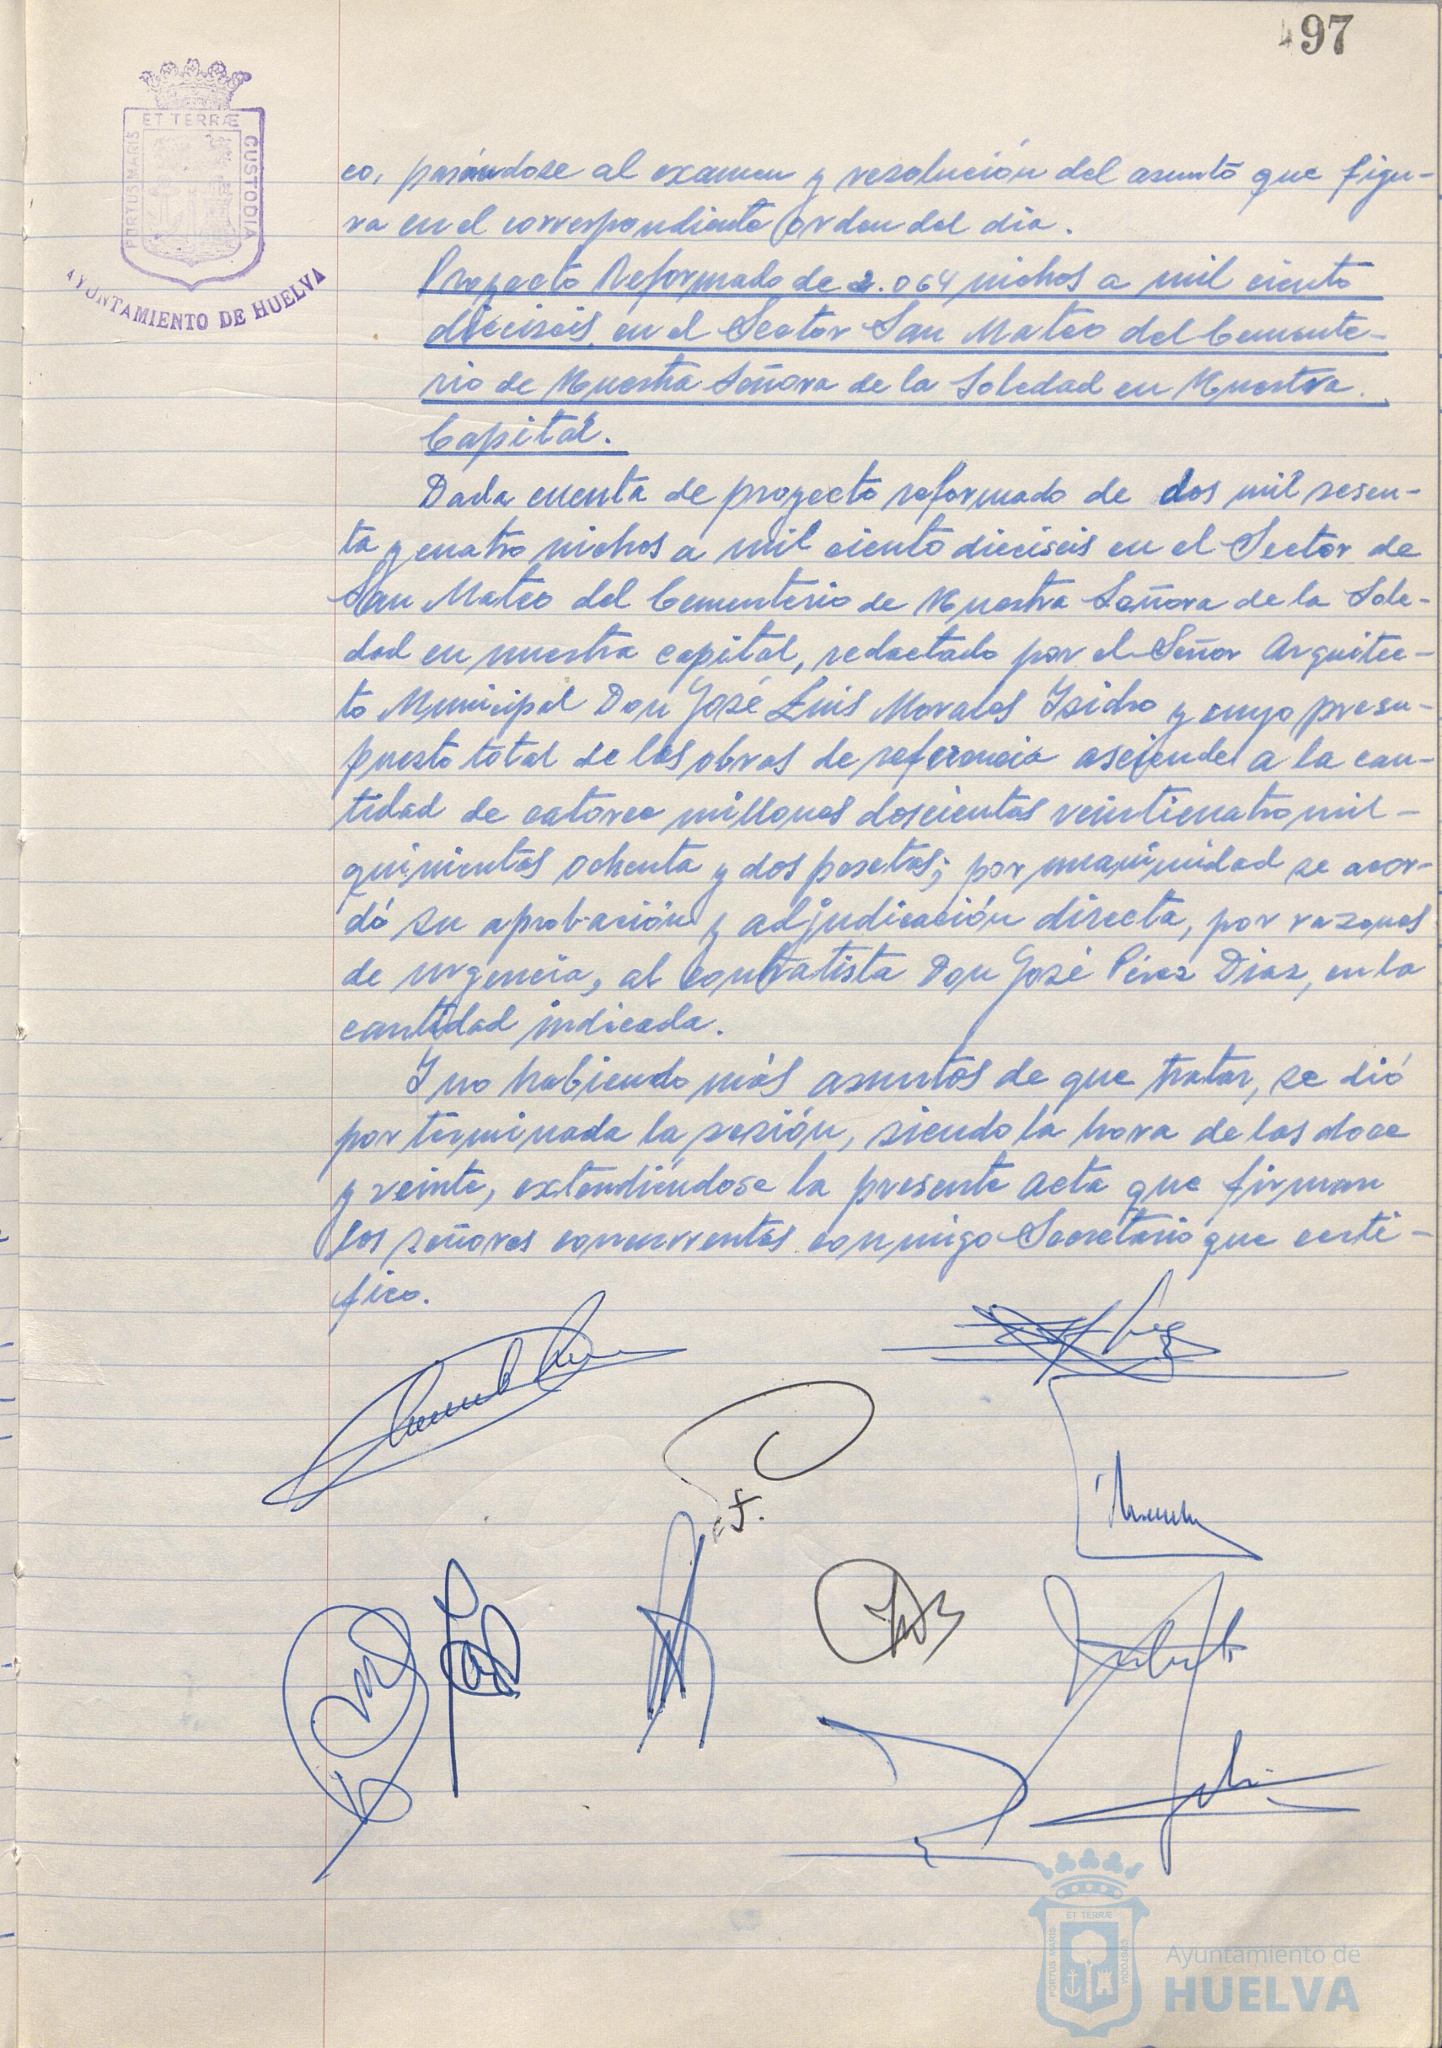 97
ET TERRÆ
PORTUS MARIS
CUSTODIA
AYUNTAMIENTO DE HUELVA
co, pasándose al examen y resolución del asunto que figu-
ra en el correspondiente orden del día.
Proyecto Reformado de 2.064 nichos a mil ciento
dieciseis, en el Sector San Mateo del Cemente-
rio de Nuestra Señora de la Soledad en Nuestra
Capital.
Dada cuenta de proyecto reformado de dos mil sesen-
ta y cuatro nichos a mil ciento dieciseis en el Sector de
San Mateo del Cementerio de Nuestra Señora de la Sole-
dad en nuestra capital, redactado por el Señor Arquitec-
to Municipal Don José Luis Morales Isidro y cuyo presu-
puesto total de las obras de referencia asciende a la can-
tidad de catorce millones doscientas veinticuatro mil-
quinientas ochenta y dos pesetas; por unanimidad se acor-
dó su aprobación y adjudicación directa, por razones
de urgencia, al contratista Don José Pérez Diaz, en la
cantidad indicada.
Y no habiendo más asuntos de que tratar, se dió
por terminada la sesión, siendo la hora de las doce
y veinte, extendiéndose la presente acta que firman
los señores concurrentes conmigo Secretario que certi-
fico.
ET TERRÆ
PORTUS MARIS
CUSTODIA
Ayuntamiento de
HUELVA